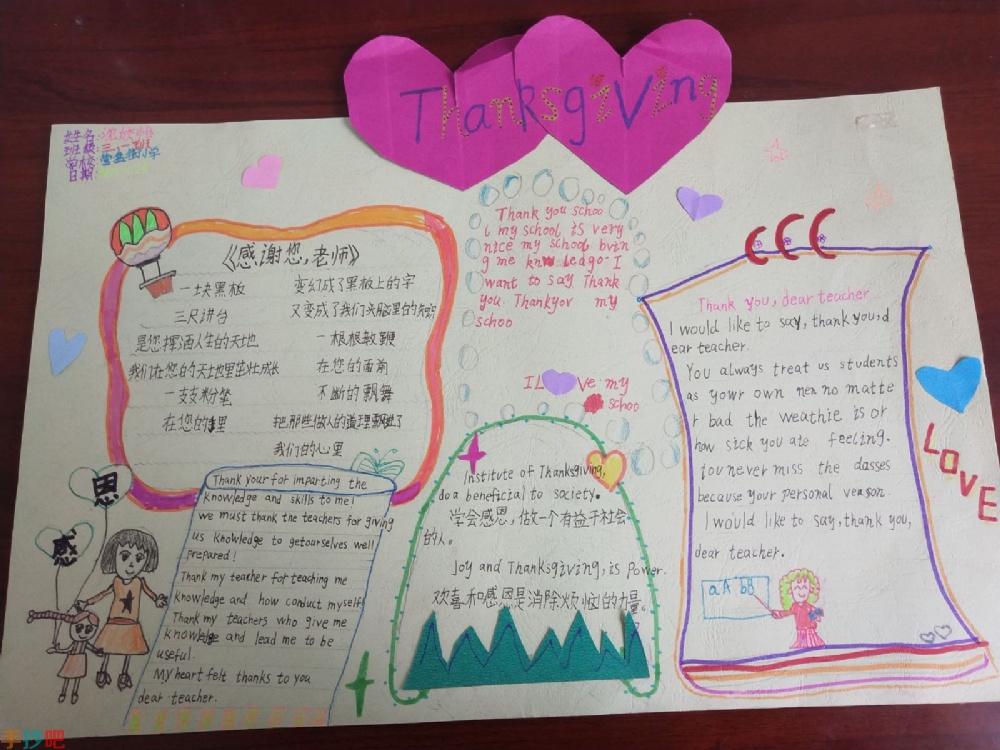 Thanksgiving
姓名:
班级:三、一班
学校 小学
日期:
《感谢您,老师》
一块黑板
三尺讲台
是您挥洒人生的天地
我们在您的天地里茁壮成长
一支支粉笔
在您的 里
变幻成了黑板上的字
又变成了我们头脑里的知识
一根根教鞭
在您的面前
不断的飘舞
把那些做人的道理飘进了
我们的心里
Thank you schoo
l my school is very
nice my school bvin
g me know ledgo-I
want to say Thank
you. Thankyor my
schoo
I L ve my
schoo
Thank you, dear teacher
I would like to say, thank you,d
ear teacher.
You always treat us students
as your own men no matte
r bad the weathie is or
how sick you ate feeling.
you never miss the classes
because your personal veason.
I would like to say,thank you,
dear teacher.
aA bB
LOVE
恩
感
Thank your for imparting the
knowledge and skills to me!
we must thank the teachers for giving
us knowledge to getourselves well
prepared!
Thank my teacher for teaching me
knowledge and how conduct myself
Thank my teachers who give me
knowledge and lead me to be
useful.
My heart felt thanks to you
dear teacher.
Institute of Thanksgiving,
do a beneficial to society.
学会感恩,做一个有益于社会
的人。
Joy and Thanksgiving, is Power.
欢喜和感恩是消除烦恼的力量。
手抄吧